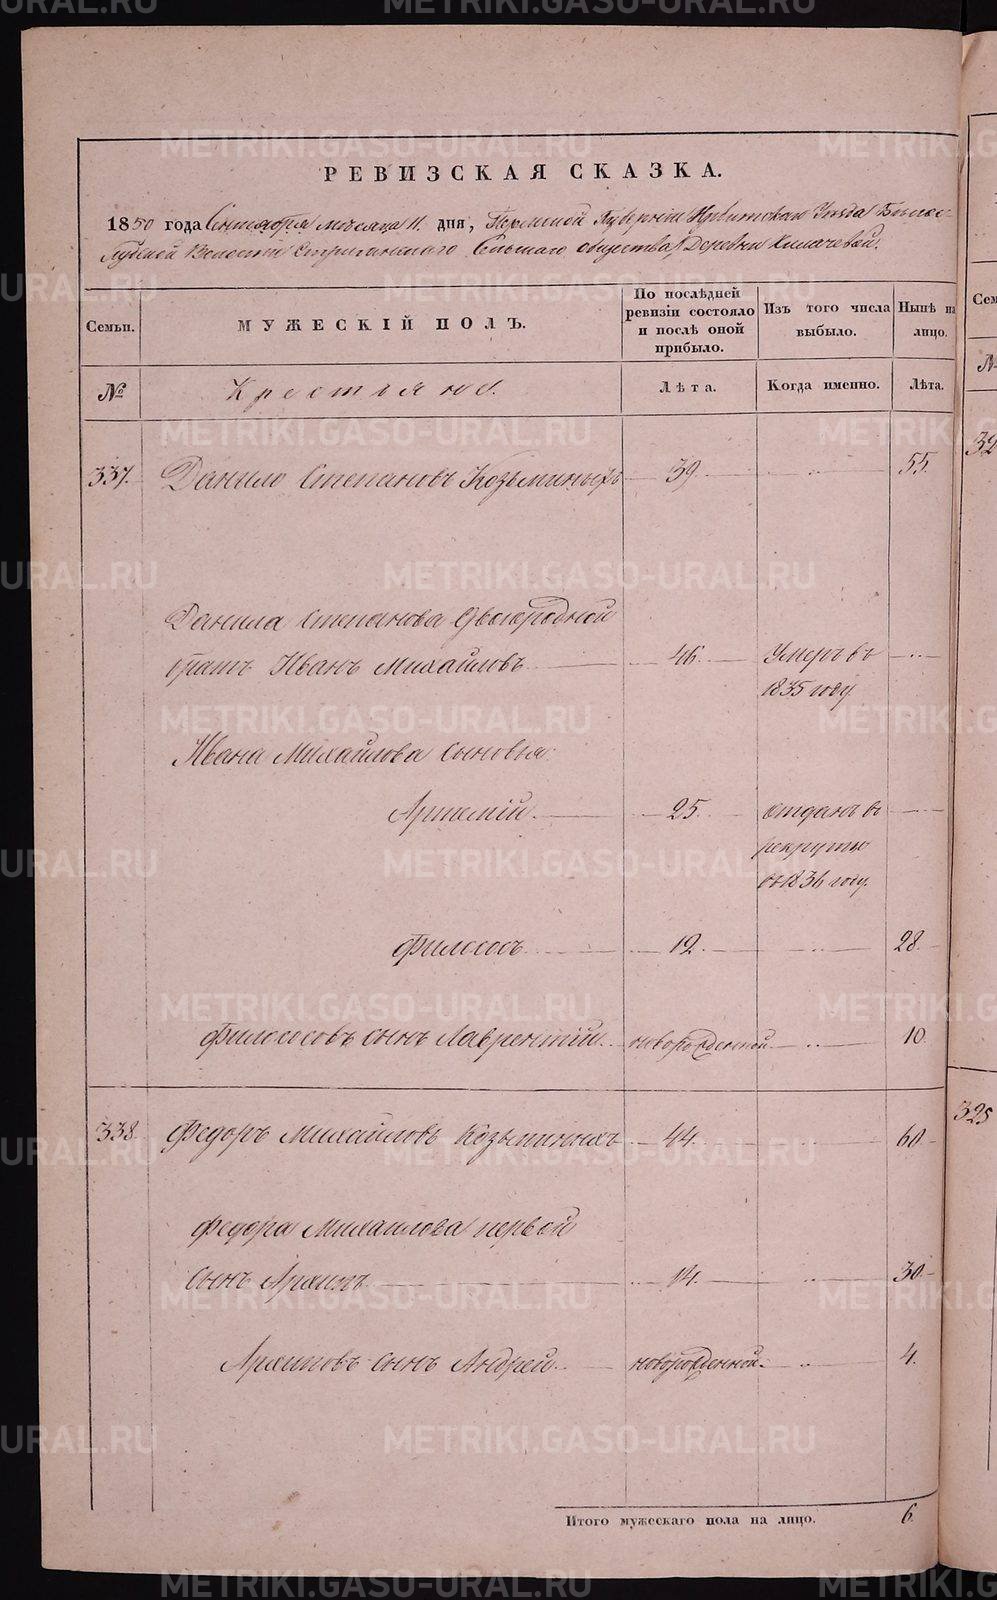 РЕВИЗСКАЯ СКАЗКА.
1850 года Сентября месяца 11 дня, Пермской Губерніи Ирбитскаго Уезда Бело-
Слудской Волости Стриганскаго Сельскаго общества, Деревни
Семьи.
МУЖЕСКІЙ ПОЛЪ.
По послѣдней ревизіи состояло и послѣ оной прибыло.
Изъ того числа выбыло.
Нынѣ на лицо.
№
Крестьяне.
Лѣта.
Когда именно.
Лѣта.
337. Данило Степановъ Козьминыхъ 39 55.
Данила Степанова Двоюродной
братъ Иванъ Михайловъ 46. Умеръ въ
1835 году
Ивана Михайлова сыновья:
Артемій 25. отданъ въ
рекруты
въ 1836 году.
Филосовъ 12. 28
Филосовъ сынъ Лаврентій новорожденной 10
338 Федоръ Михайловъ Козьминыхъ 44. 60
Федора Михайлова первой
сынъ Архипъ 14. 30
Архиповъ сынъ Андрей новорожденной 4.
Итого мужескаго пола на лицо. 6
Сем
№
32
325
METRIKI.GASO-URAL.RU